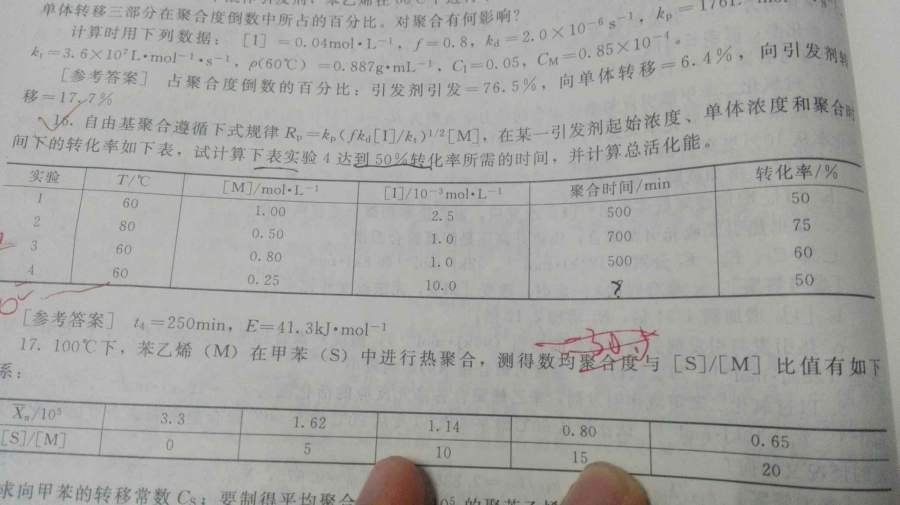 单体转移三部分在聚合度倒数中所占的百分比。对聚合有何影响?
计算时用下列数据: [I]=0.04mol·L⁻¹, f=0.8, kd=2.0×10⁻⁶s⁻¹, kp=176L
kt=3.6×10⁷L·mol⁻¹·s⁻¹, ρ(60℃)=0.887g·mL⁻¹, CI=0.05, CM=0.85×10⁻⁴。
[参考答案] 占聚合度倒数的百分比:引发剂引发=76.5%, 向单体转移=6.4%, 向引发剂转
移=17.7%
16. 自由基聚合遵循下式规律 Rp=kp(fkd[I]/kt)¹/²[M], 在某一引发剂起始浓度、单体浓度和聚合时
间下的转化率如下表,试计算下表实验4达到50%转化率所需的时间,并计算总活化能。
实验 T/℃ [M]/mol·L⁻¹ [I]/10⁻³mol·L⁻¹ 聚合时间/min 转化率/%
1 60 1.00 2.5 500 50
2 80 0.50 1.0 700 75
3 60 0.80 1.0 500 60
4 60 0.25 10.0 ? 50
[参考答案] t₄=250min, E=41.3kJ·mol⁻¹
17. 100℃下,苯乙烯(M)在甲苯(S)中进行热聚合,测得数均聚合度与[S]/[M]比值有如下
系:
X̄n/10⁵ 3.3 1.62 1.14 0.80 0.65
[S]/[M] 0 5 10 15 20
求向甲苯的转移常数CS;要制得平均聚合